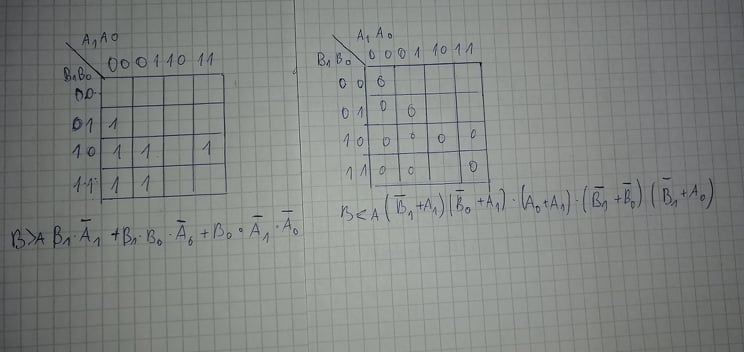 A₁A₀
B₁B₀ 00 01 10 11
00
01 1
10 1 1 1
11 1 1
B>A B₁·A̅₁ + B₁·B₀·A̅₀ + B₀·A̅₁·A̅₀
A₁A₀
B₁B₀ 00 01 10 11
00 0
01 0 0
10 0 0 0 0
11 0 0 0
B<A (B̅₁+A₁)(B̅₀+A₁)·(A₀+A₁)·(B̅₁+B̅₀)(B̅₁+A₀)